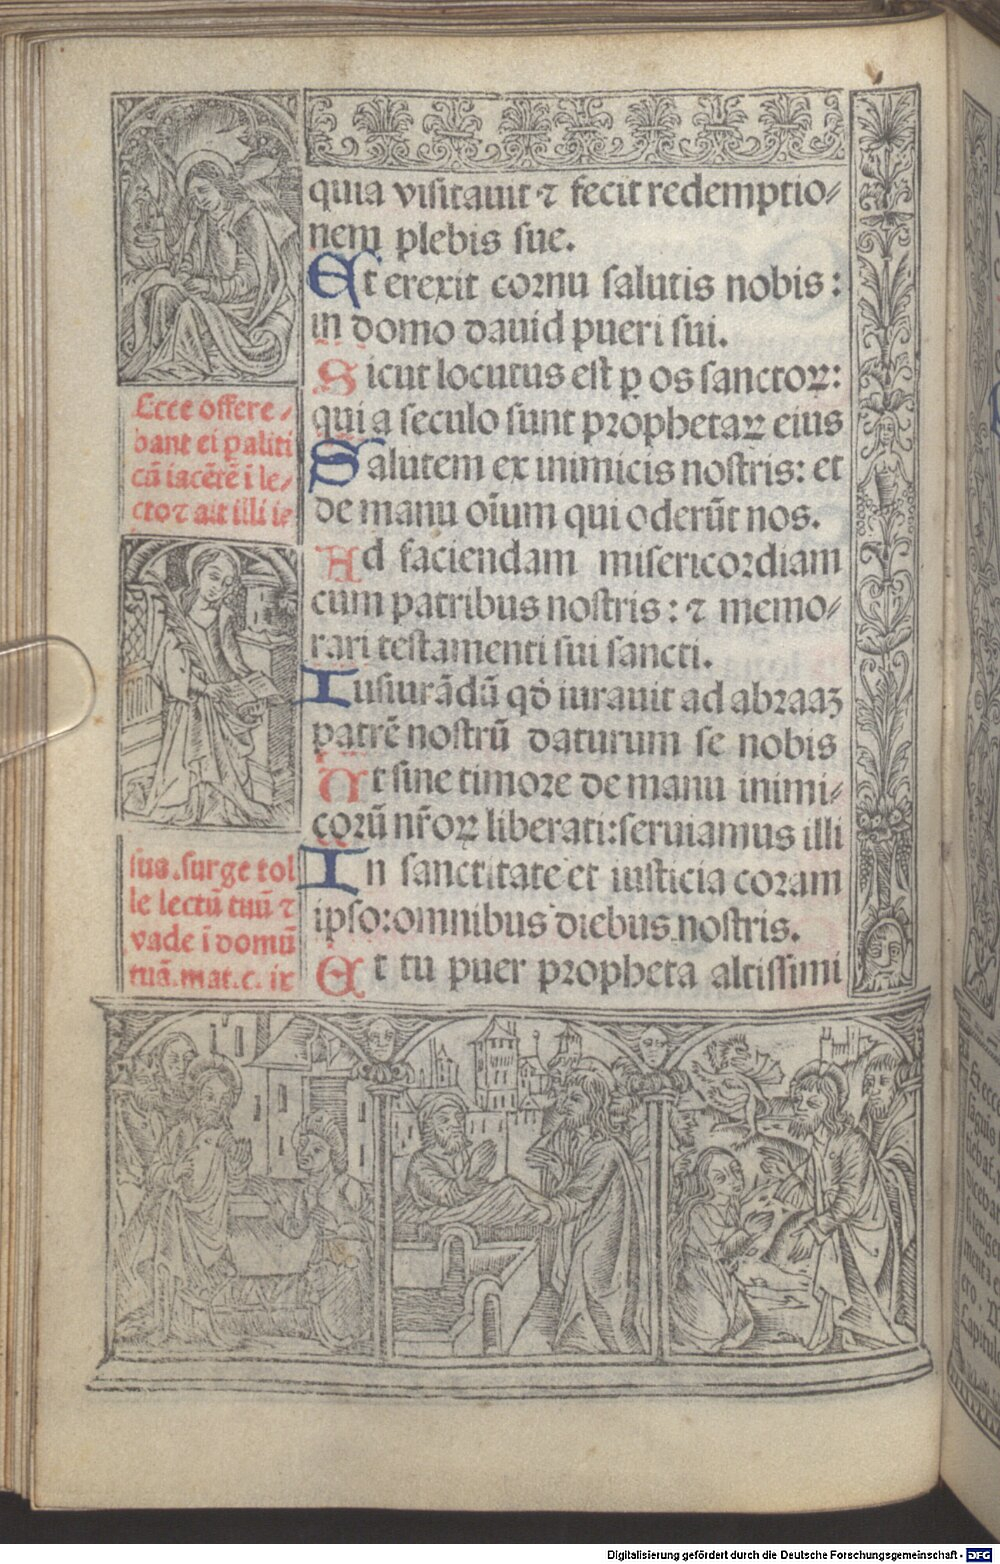 quia visitauit ⁊ fecit redemptio⸗
nem plebis sue.
Et erexit cornu salutis nobis:
in domo dauid pueri sui.
Sicut locutus est ꝑ os sanctoꝝ:
qui a seculo sunt prophetaꝝ eius
Salutem ex inimicis nostris: et
de manu oīum qui oderūt nos.
Ad faciendam misericordiam
cum patribus nostris: ⁊ memo⸗
rari testamenti sui sancti.
Iusiurādū qđ iurauit ad abraaꝫ
patrē nostrū daturum se nobis
Ut sine timore de manu inimi⸗
corū nr̄oꝝ liberati: seruiamus illi
In sanctitate et iusticia coram
ipso: omnibus diebus nostris.
Et tu puer propheta altissimi
Ecce offere⸗
bant ei ꝑaliti
cū iacētē i le⸗
cto ⁊ ait illi ie
sus. surge tol
le lectū tuū ⁊
vade ī domū
tuā. mat. c. ix
Digitalisierung gefördert durch die Deutsche Forschungsgemeinschaft - DFG